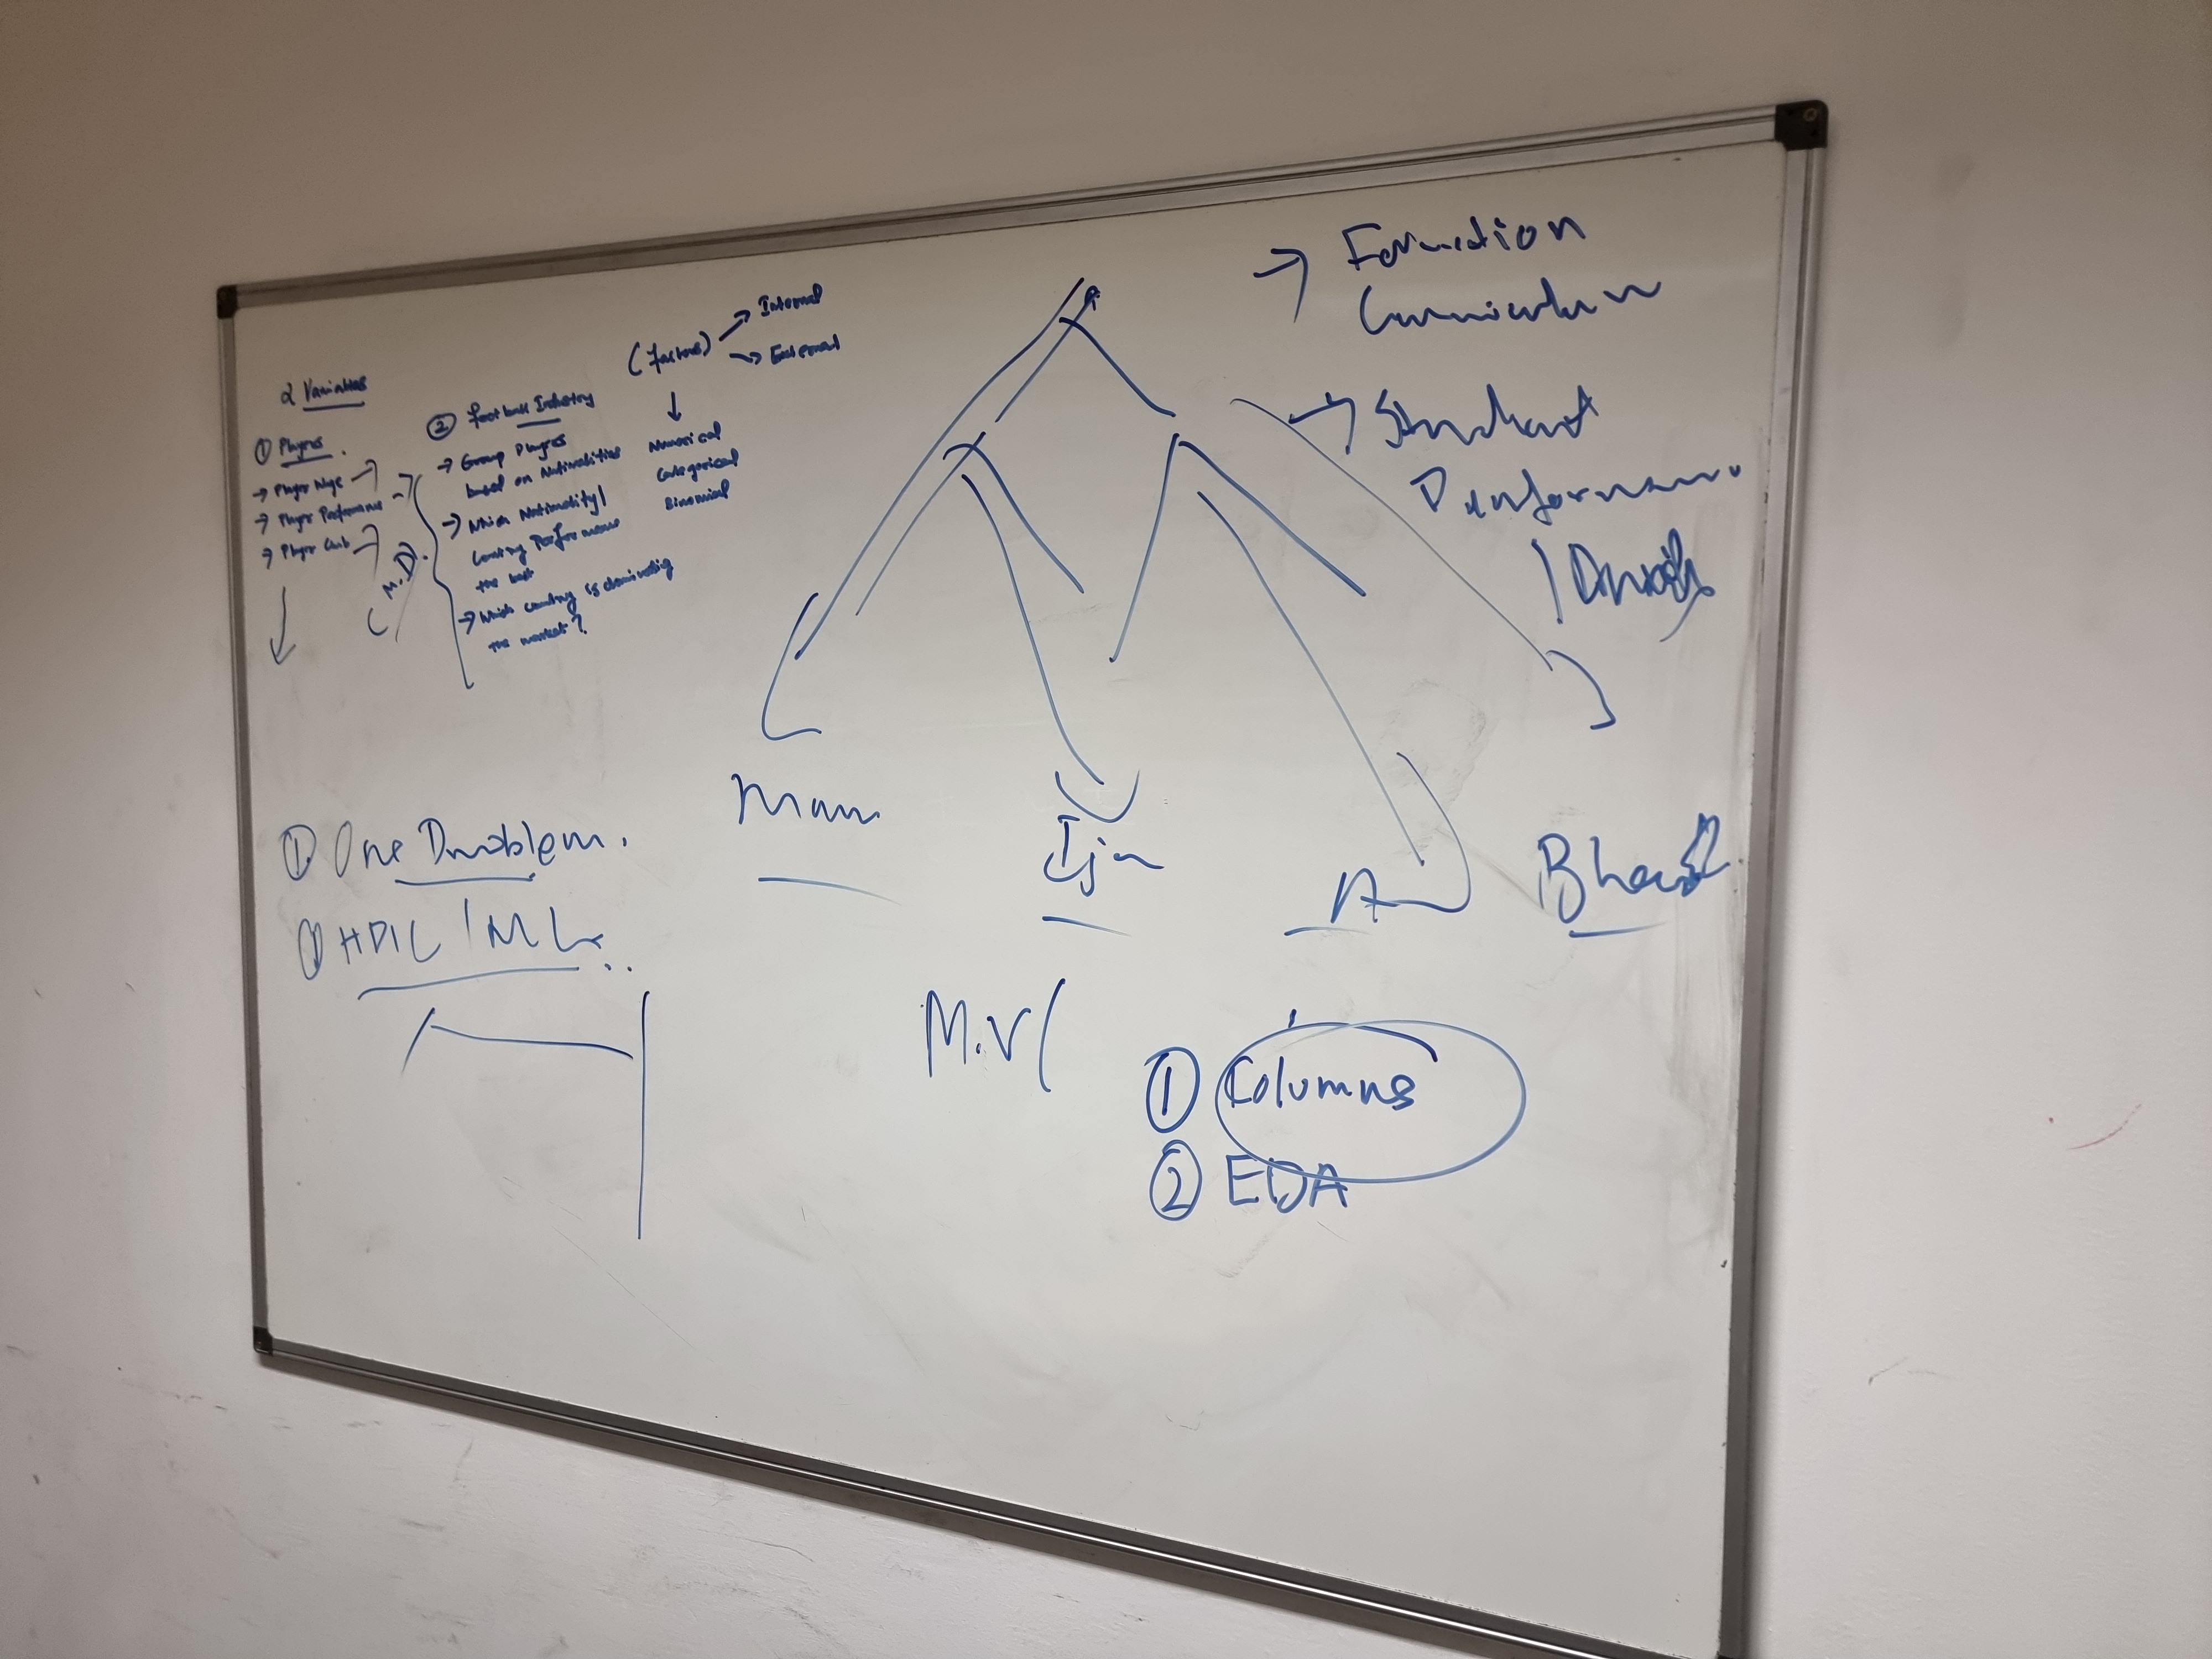 2 Variables
① Players.
→ Player Wage
→ Player Performance
→ Player Club
M.D.
② Football Industry
→ Group Players
based on Nationalities
→ Which Nationality/
Country Performance
the best
→ Which country is dominating
the market?
(factors) → Internal
→ External
↓
Numerical
Categorical
Binomial
→ Formation
Curriculum
→ Student
Performance
① One Problem.
Ijn
A
M.V(
① Columns
② EDA